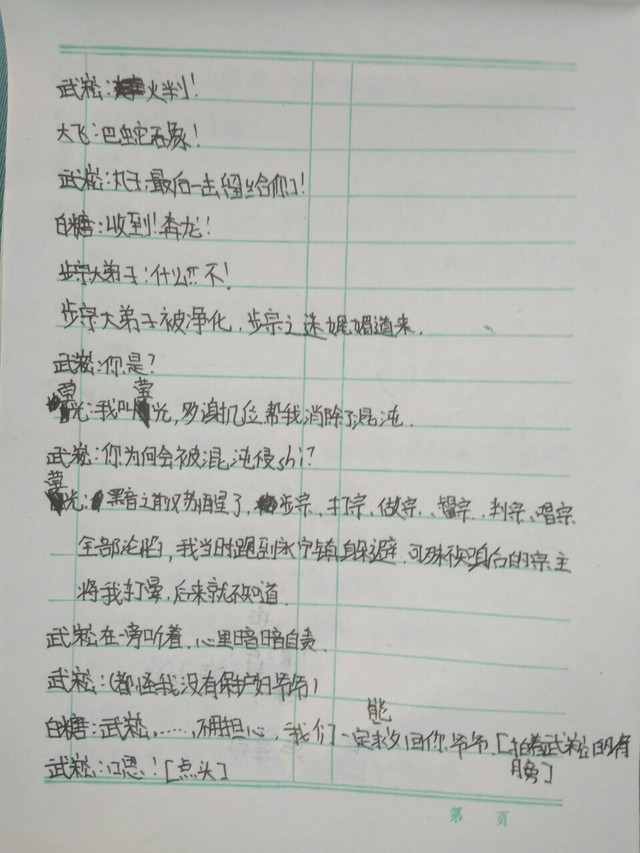 武崧:火判!
大飞:巴蛇吞象!
武崧:丸子!最后一击留给你了!
白糖:收到!奔龙!
步宗大弟子:什么!?不!
步宗大弟子被净化,步宗之迷娓娓道来.
武崧:你是?
萤光:我叫萤光,多谢几位帮我消除了混沌.
武崧:你为何会被混沌侵shi?
萤光:黑音之前又苏醒了,步宗、打宗、做宗、督宗、判宗、唱宗
全部沦陷,我当时跑到永宁镇躲避.可殊不知身后的宗主
将我打晕,后来就不知道.
武崧在一旁听着,心里暗暗自责.
武崧:(都怪我没有保护好爷爷)
白糖:武崧,……,不用担心,我们一定能救回你爷爷.[拍着武崧的肩
膀]
武崧:嗯![点头]
第 页